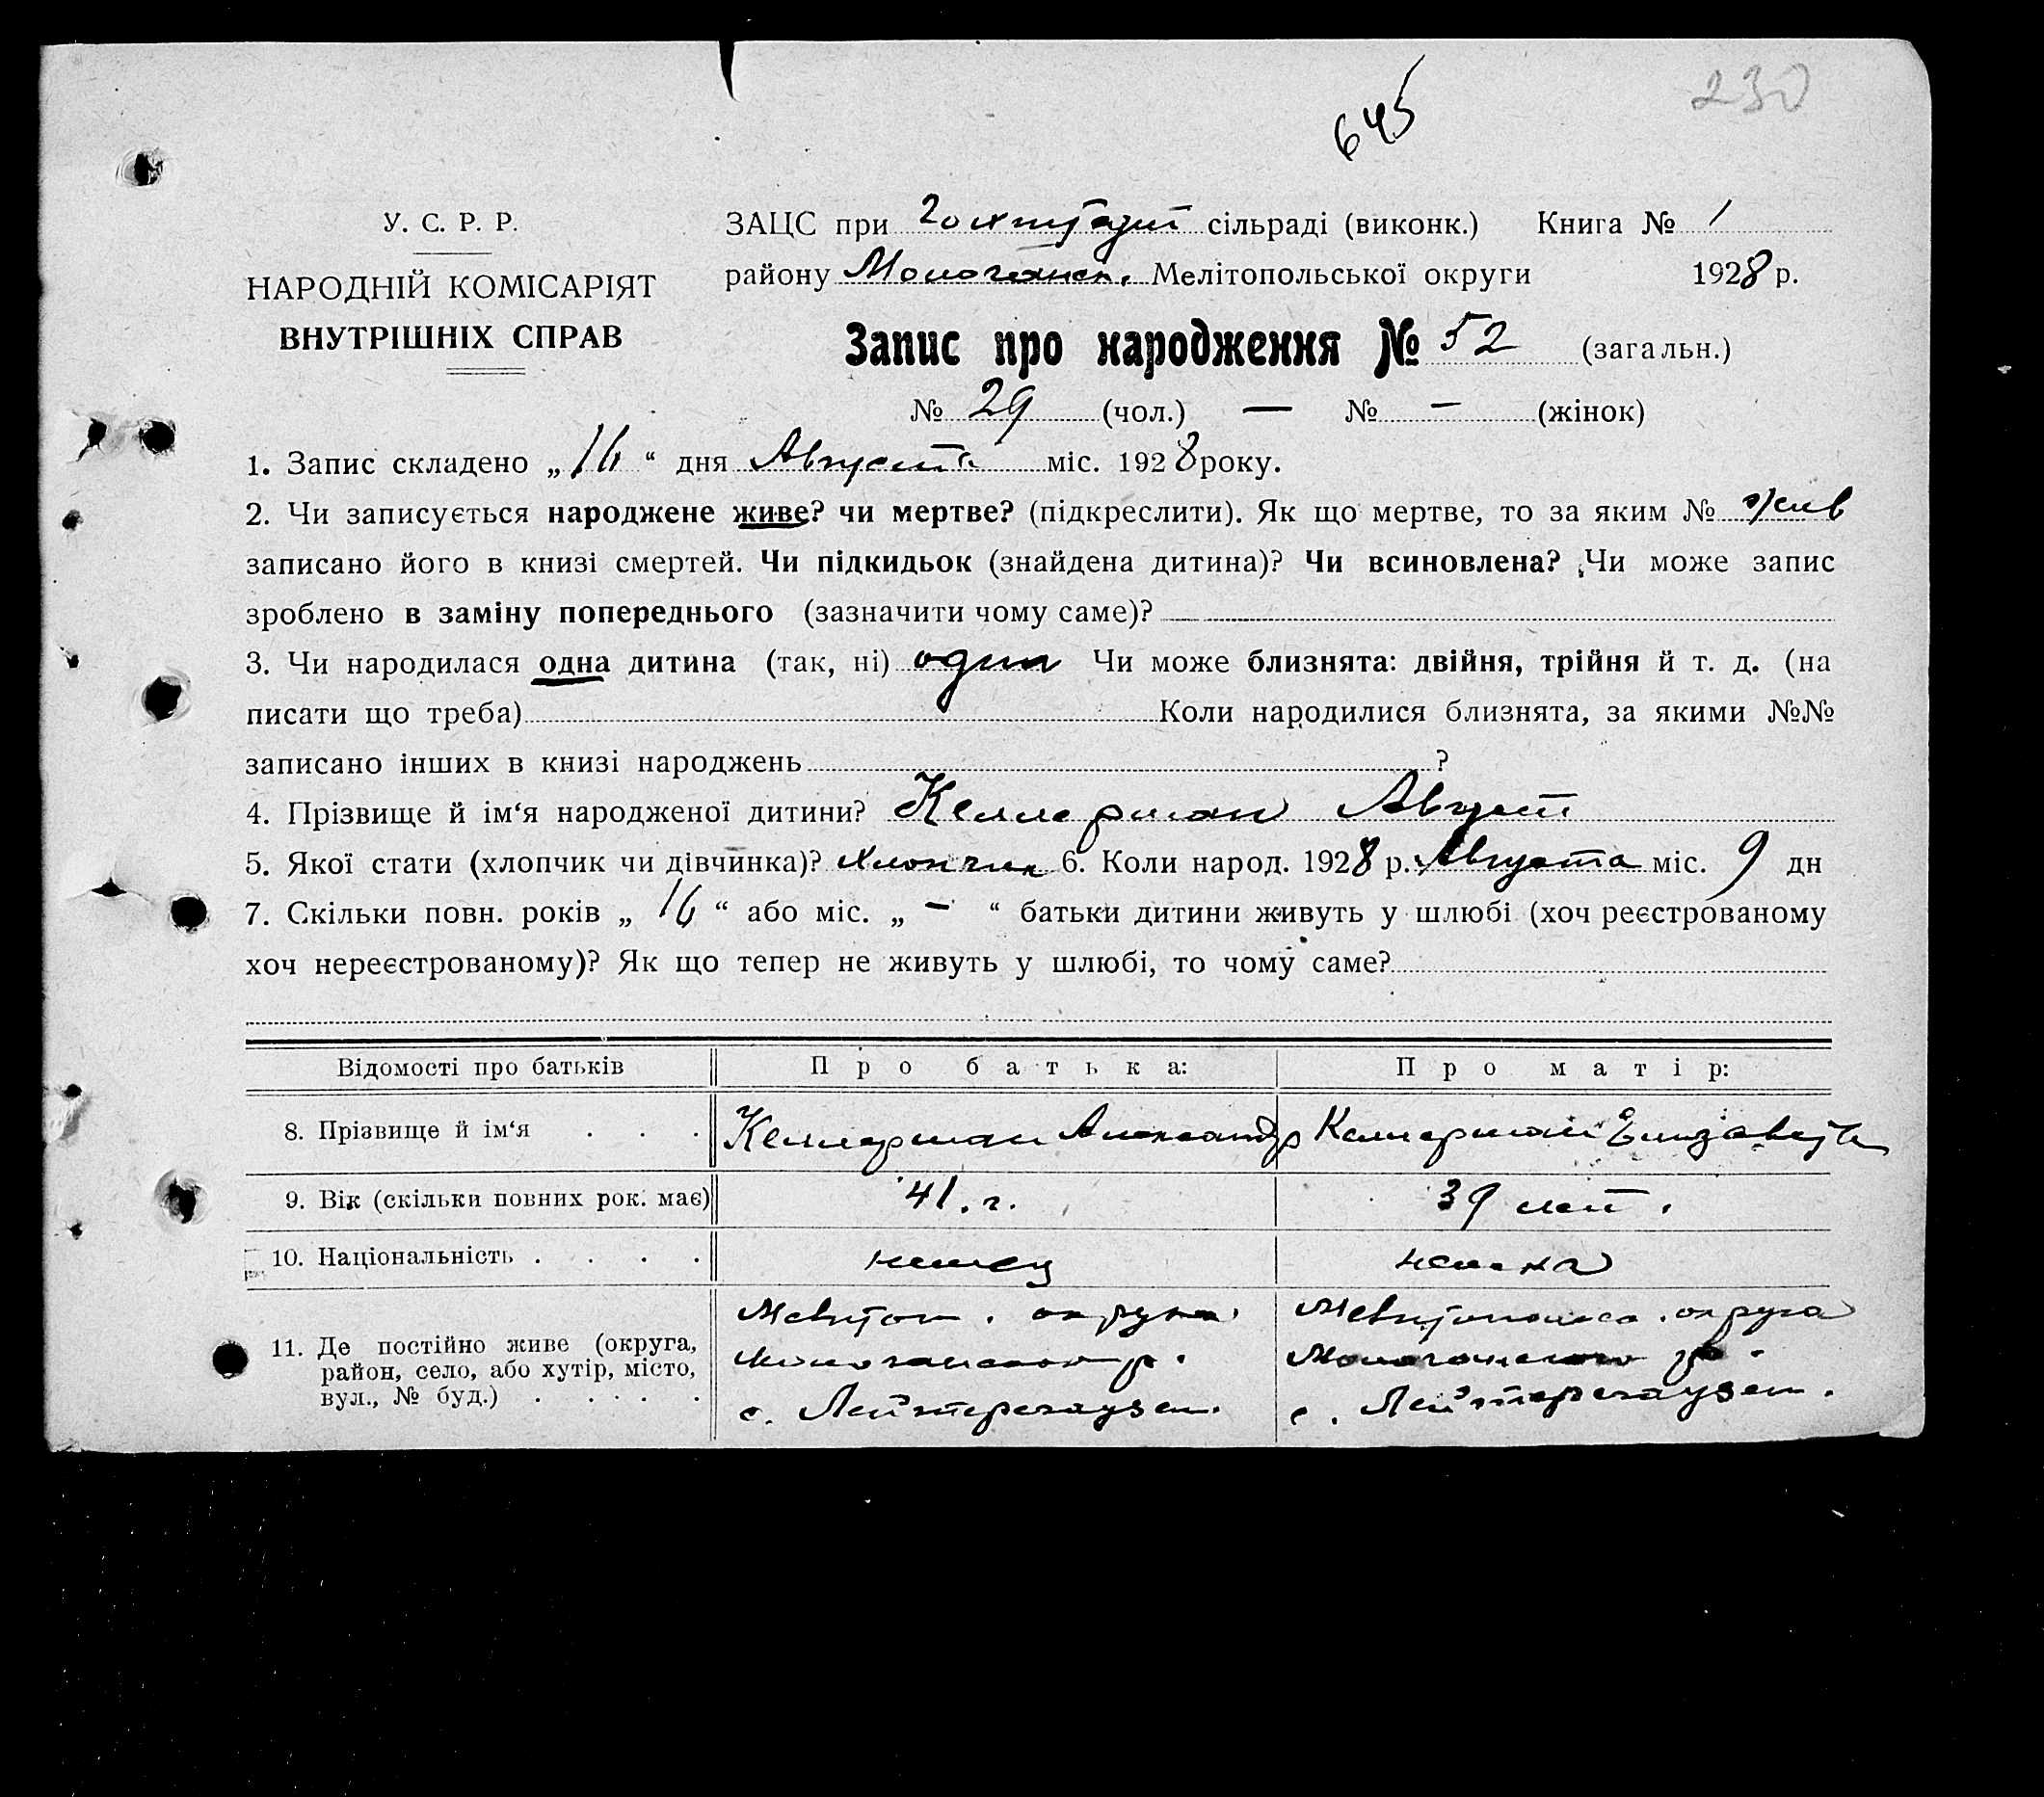 230
645
У. С. Р. Р.
НАРОДНІЙ КОМІСАРІЯТ
ВНУТРІШНІХ СПРАВ
ЗАЦС при сільраді (виконк.) Книга № 1
району Молочанск. Мелітопольської округи 1928 р.
Запис про народження № 52 (загальн.)
№ 29 (чол.) — № — (жінок)
1. Запис складено „16“ дня Августа міс. 1928 року.
2. Чи записується народжене живе? чи мертве? (підкреслити). Як що мертве, то за яким № жив
записано його в книзі смертей. Чи підкидьок (знайдена дитина)? Чи всиновлена? Чи може запис
зроблено в заміну попереднього (зазначити чому саме)?
3. Чи народилася одна дитина (так, ні) один Чи може близнята: двійня, трійня й т. д. (на
писати що треба) Коли народилися близнята, за якими №№
записано інших в книзі народжень ?
4. Прізвище й ім‘я народженої дитини? Келлерман Август
5. Якої стати (хлопчик чи дівчинка)? хлопчик 6. Коли народ. 1928 р. Августа міс. 9 дн
7. Скільки повн. років „ 16 “ або міс. „ — “ батьки дитини живуть у шлюбі (хоч реєстрованому
хоч нереєстрованому)? Як що тепер не живуть у шлюбі, то чому саме?
Відомості про батьків Про батька: Про матір:
8. Прізвище й ім‘я . . . Келлерман Александр Келлерман Елизавета
9. Вік (скільки повних рок. має) 41. г. 39 лет.
10. Національність . . . . немец немка
11. Де постійно живе (округа, район, село, або хутір, місто, вул., № буд.) . . . . .
Мелитоп. округа Молочанского р. с. Лейтерсгаузен.
Мелитопольск. округа Молочанского р. с. Лейтерсгаузен.